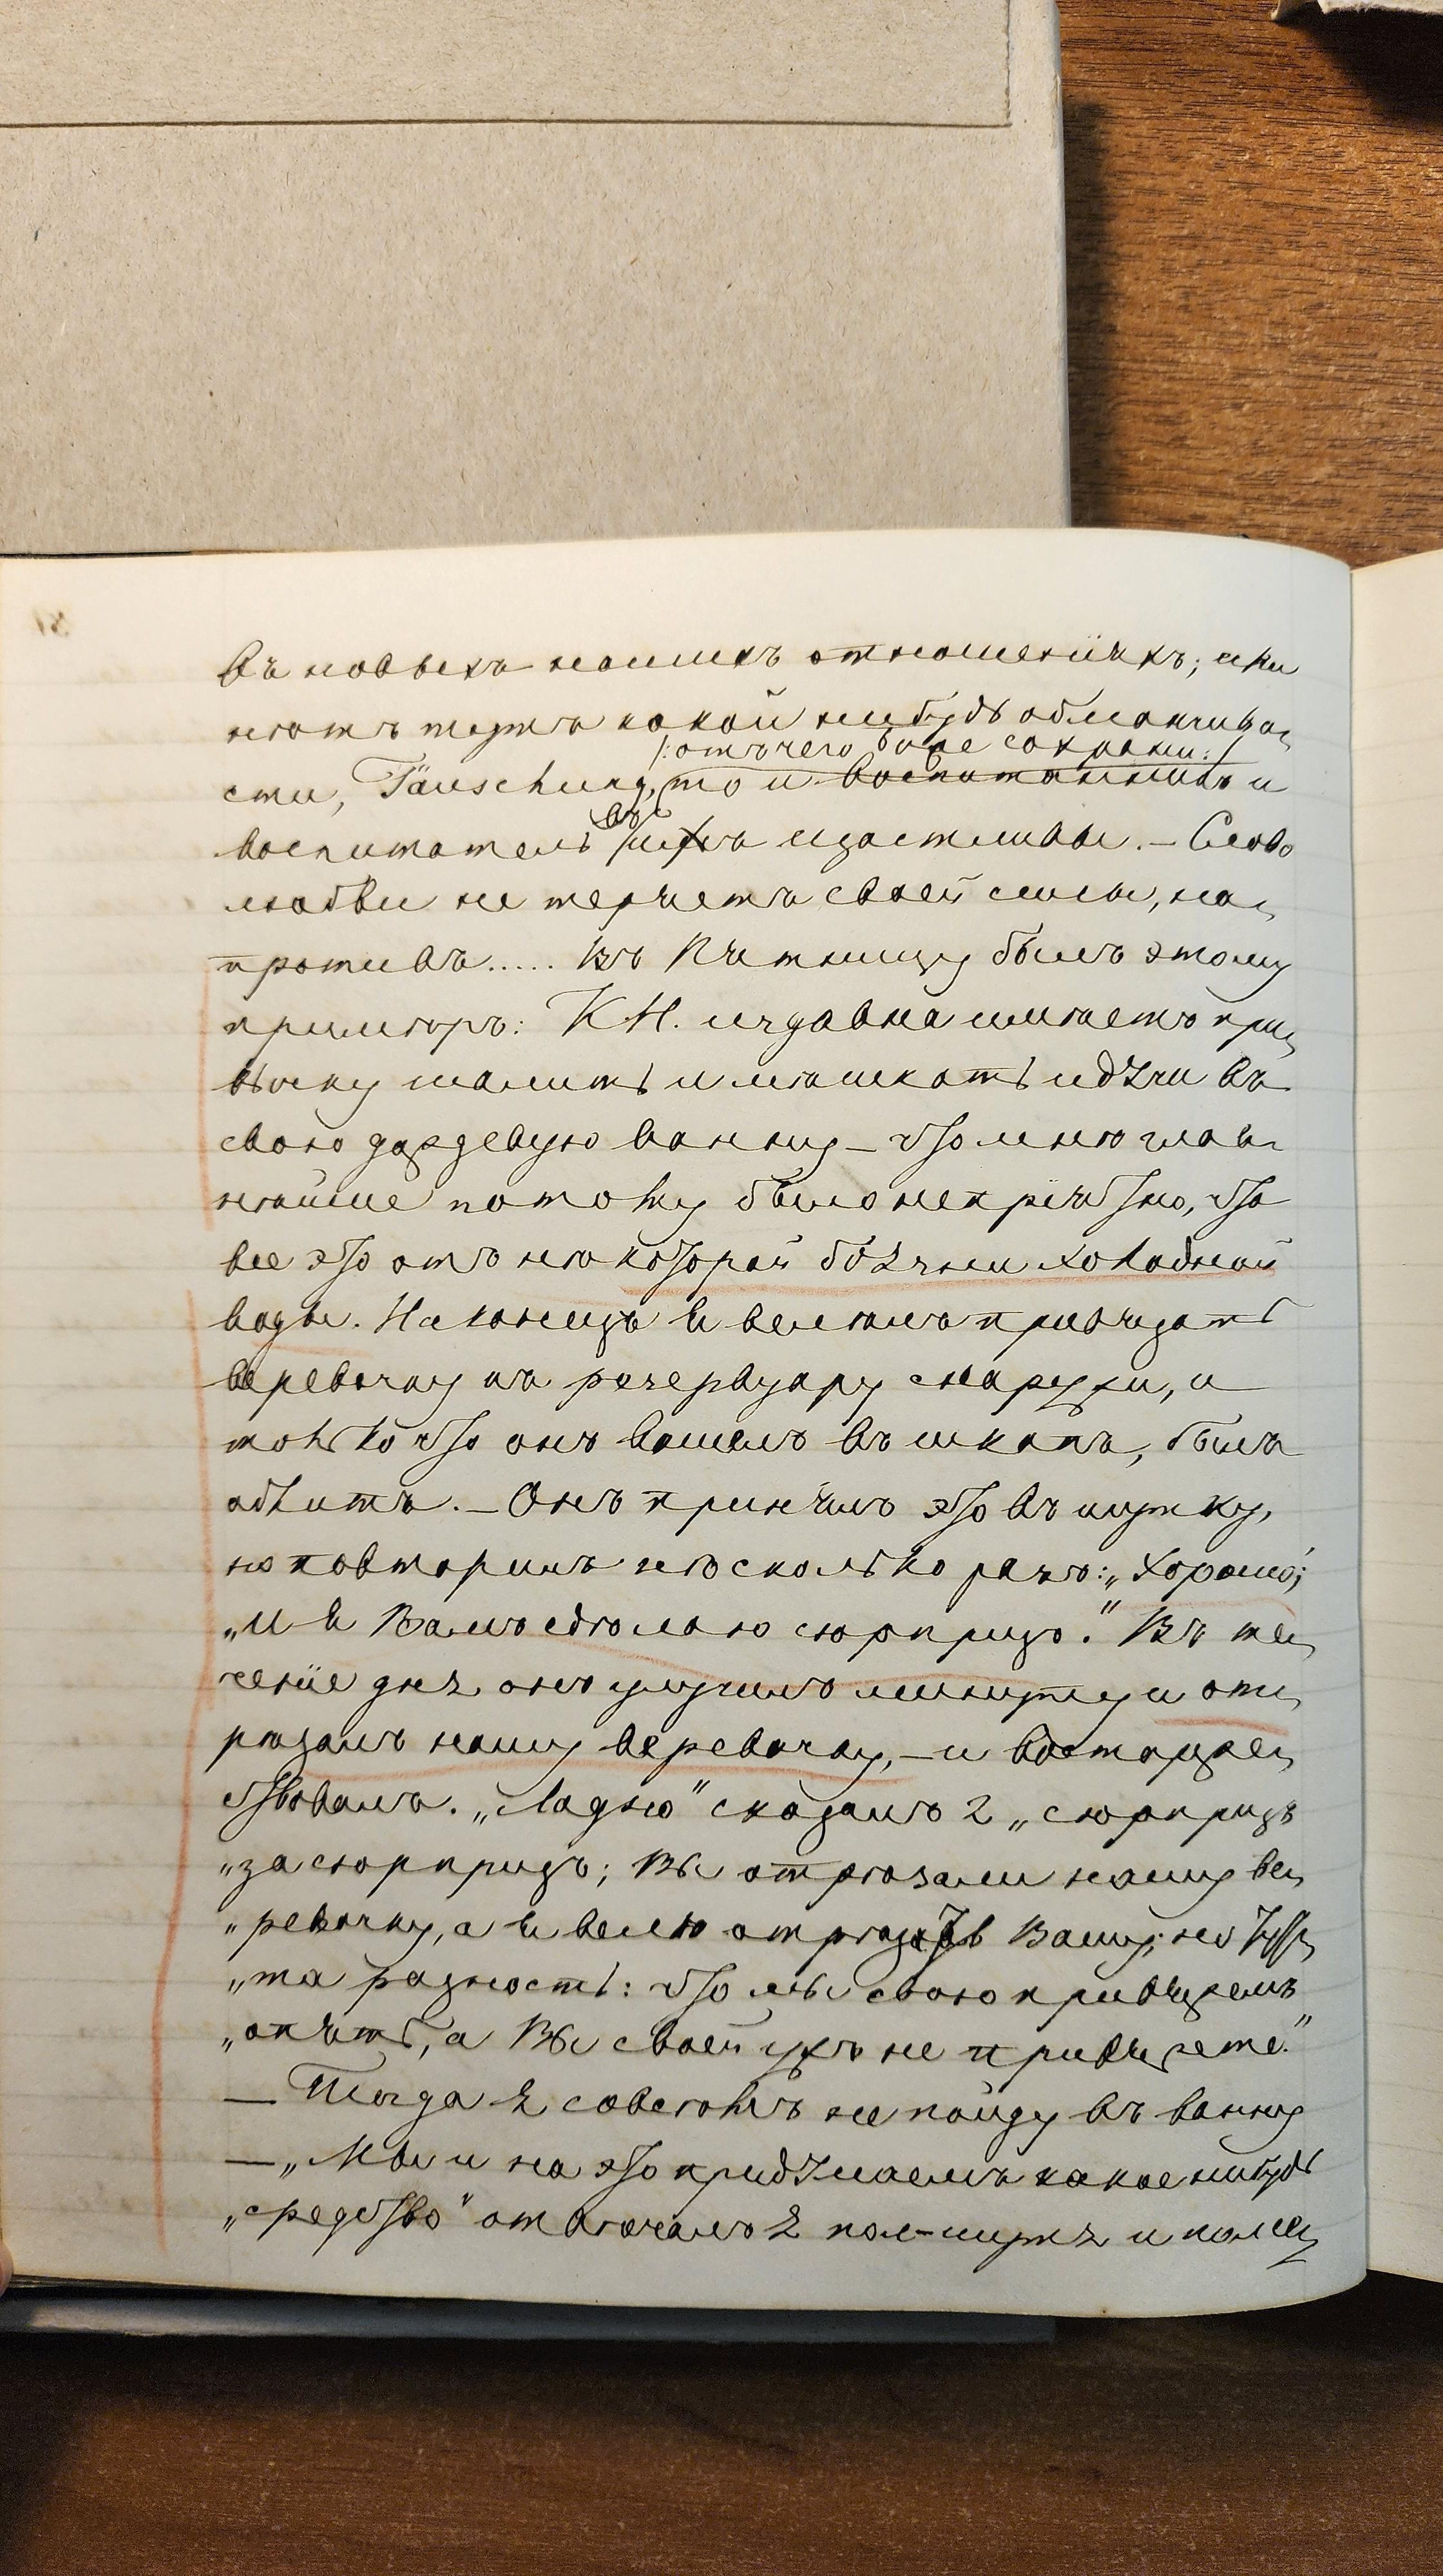 въ новыхъ нашихъ отношеніяхъ; или
нѣтъ тутъ какой нибудь обманчиво=
/: отъ чего Боже сохрани :/
сти, Täuschung, то и воспитанникъ и
въ
воспитатель нихъ щастливы. — Слово
любви не теряетъ своей силы, на=
противъ..... Въ Пятницу былъ этому
примѣръ: К.Н. издавна имѣетъ при=
вычку шалить и мѣшкать идучи въ
свою дождевую ванну — что мнѣ глав=
нѣйше потому было непріятно, что
все это отъ нѣкоторой боязни холодной
воды. Наконецъ я велѣлъ привязать
веревочку къ резервуару снаружи, и
только что онъ вошелъ въ шкапъ, былъ
облитъ. — Онъ принялъ это въ шутку,
но повторилъ нѣсколько разъ: „Хорошо;
„и я Вамъ сдѣлаю сюрпризъ." Въ те=
ченіе дня онъ улучилъ минуту и от=
рѣзалъ нашу веревочку, — и востор​же=
ствовалъ. „Ладно" сказалъ я „сюрпризъ
„за сюрпризъ; Вы отрѣзали нашу ве=
„ревочку, а я велю отрѣзать Вашу; но тутъ
„та разность: что мы свою привяжемъ
„опять, а Вы своей ужъ не привяжете."
— Тогда я совсѣмъ не пойду въ ванну
— „Мы и на это придумаемъ какое нибудь
„средство" отвѣчалъ я пол-шутя и пол=